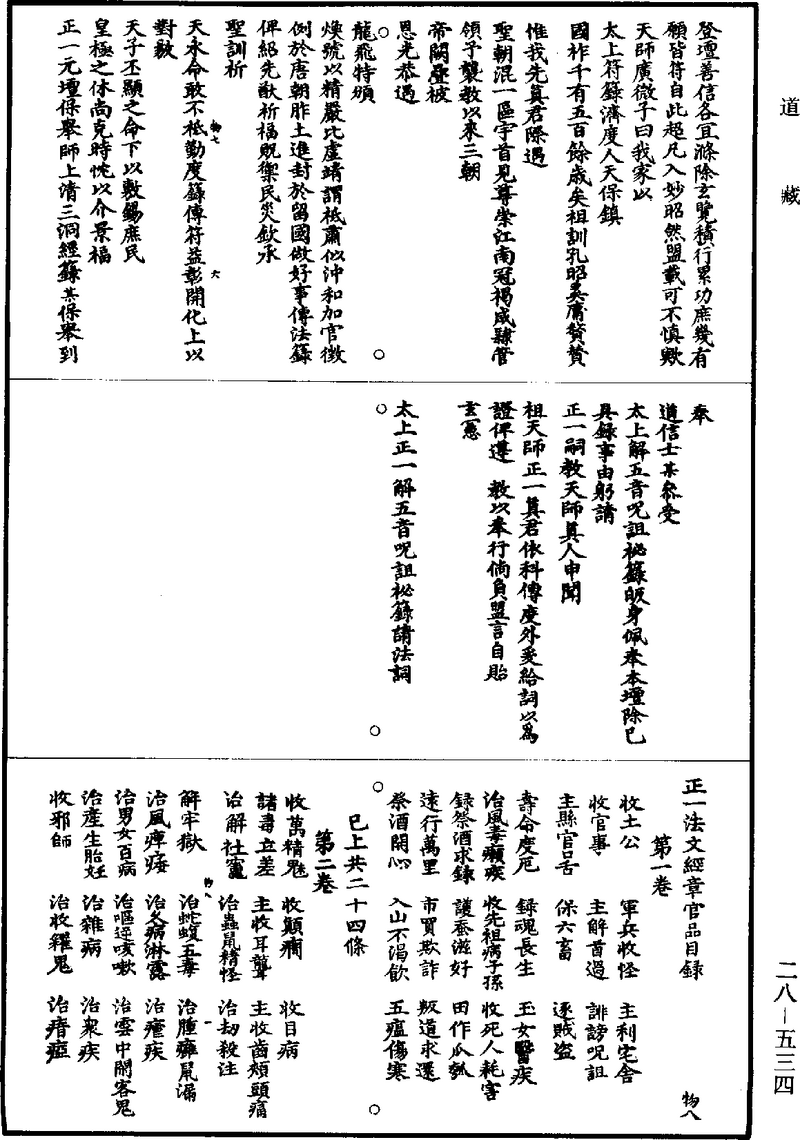 道藏
登壇善信各冝滌除玄覽積行累功庶幾有
願皆符自此超凡入妙昭然盟載可不慎歟
天師廣微子曰我家以
太上符籙濟度人天保鎮
國祚千有五百餘歲矣祖訓孔昭奚庸贅贊
惟我先真君際遇
聖朝混一區宇首見尊崇江南冠褐咸隸管
領予襲教以來三朝
帝闕疊被
恩光恭遇
龍飛特頒
煥號以精嚴比虛靖謂祗肅似沖和加官徵
例於唐朝胙土進封於留國做好事傳法籙
俾紹先猷祈福貺禦民災欽承
聖訓祈
天永命敢不祗勤度籙傳符益彰開化上以
對敭
天子丕顯之命下以敷錫庶民
皇極之休尚克時忱以介景福
正一元壇保舉師上清三洞經籙某保舉到
物七
六
奉
道信士某叅受
太上解五音呪詛祕籙皈身佩奉本壇除已
具錄事由躬請
正一嗣教天師真人申聞
祖天師正一真君依科傳度外爰給詞以為
證俾遵 教以奉行倘負盟言自貽
玄憲
太上正一解五音呪詛祕籙請法詞
正一法文經章官品目錄
物八
第一卷
收土公 軍兵收怪 主利宅舍
收官事 主解首過 誹謗呪詛
主縣官口舌 保六畜 逐賊盜
壽命度厄 錄魂長生 玉女醫疾
治風毒癩疾 收先祖病子孫 收死人耗害
錄祭酒求錄 護蚕滋好 田作瓜瓠
遠行萬里 市買欺詐 叛道求還
祭酒開心 入山不渴飲 五瘟傷寒
已上共二十四條
第二卷
收萬精魅 收顛癇 收目病
諸毒立差 主收耳聾 主收齒頰頭痛
治解社竈 治蟲鼠精怪 治刧殺注
解牢獄 治蛇蝮五毒 治腫癰鼠漏
物八
一
治風痺痿 治久病淋露 治瘧疾
治男女百病 治嘔逆咳嗽 治雲中闇客鬼
治產生胎妊 治雜病 治衆疾
收邪師 治收繹鬼 治瘖瘂
二八—五三四